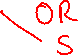 OR
S